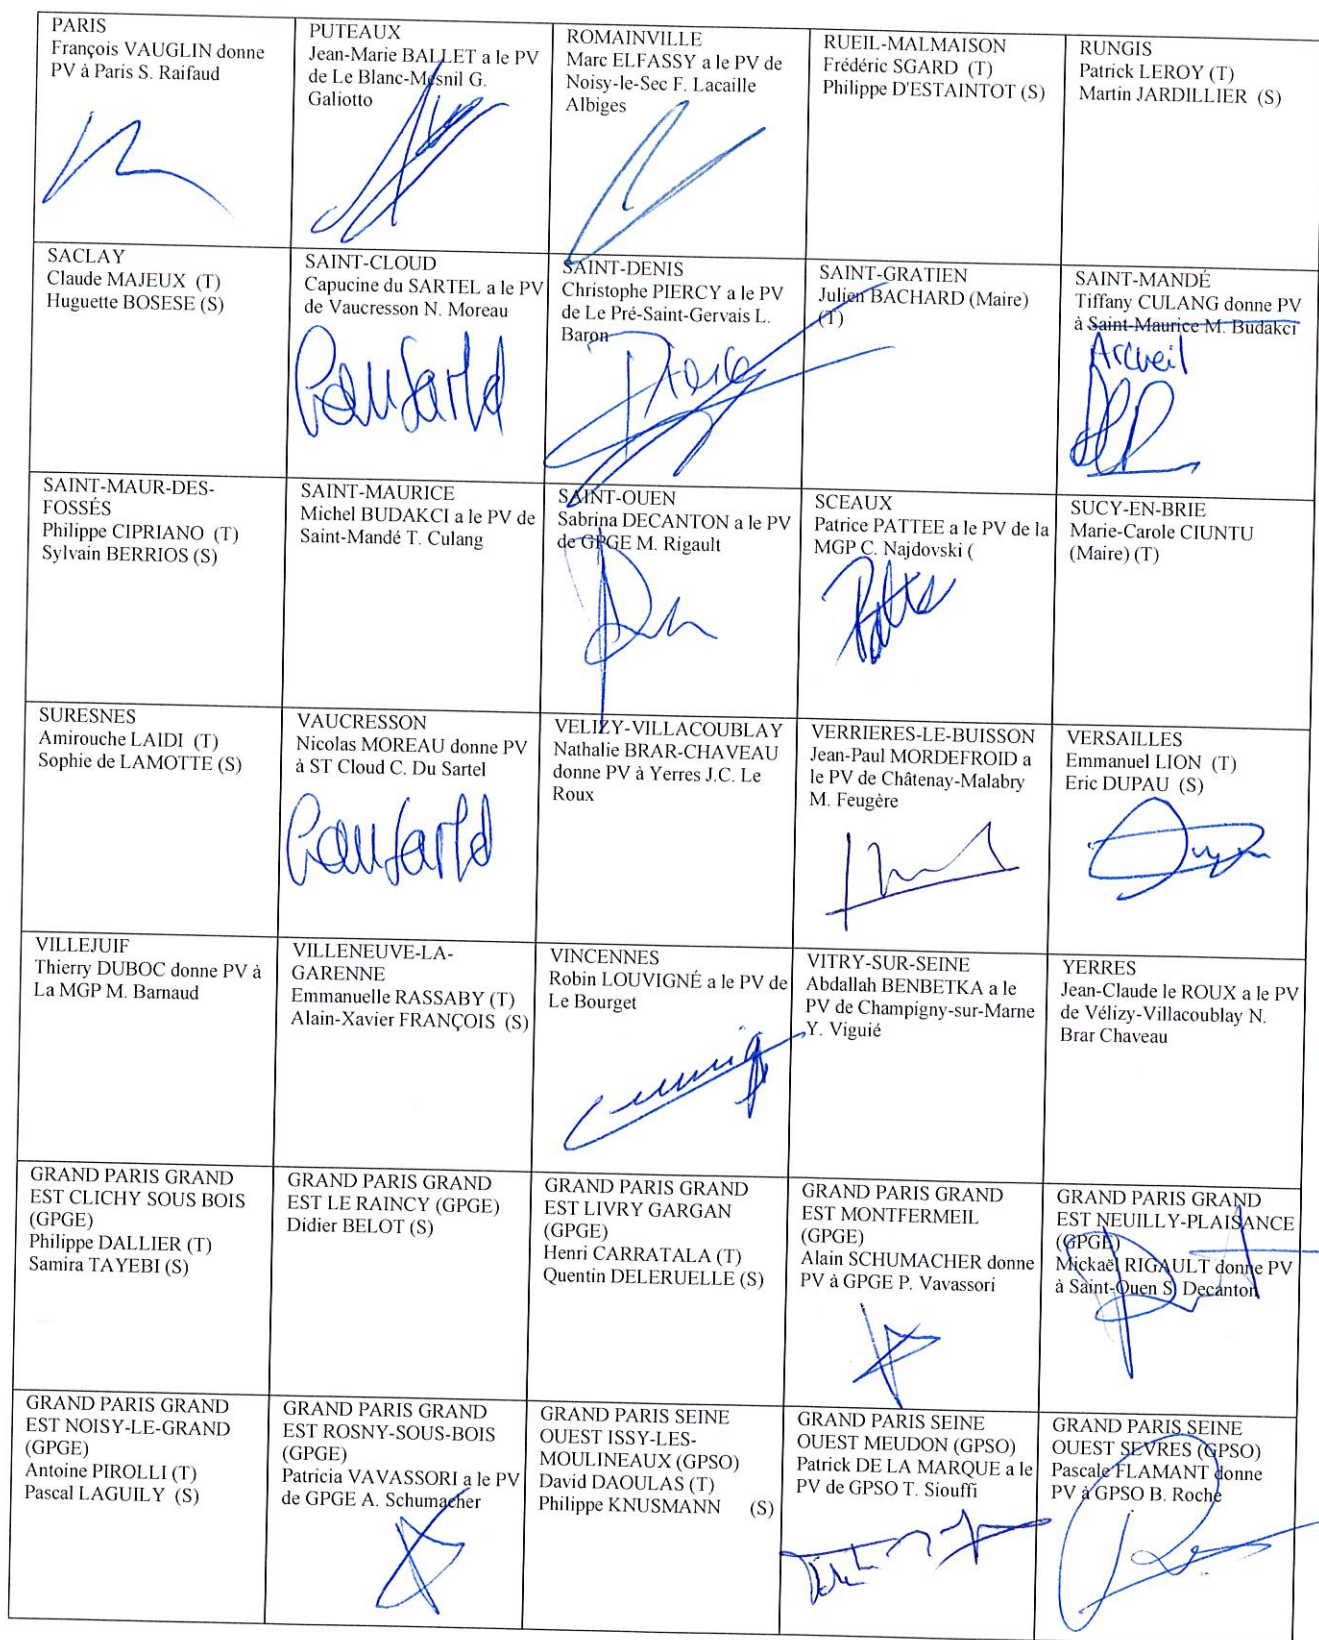 PARIS
François VAUGLIN donne
PV à Paris S. Raifaud
PUTEAUX
Jean-Marie BALLET a le PV
de Le Blanc-Mesnil G.
Galiotto
ROMAINVILLE
Marc ELFASSY a le PV de
Noisy-le-Sec F. Lacaille
Albiges
RUEIL-MALMAISON
Frédéric SGARD (T)
Philippe D'ESTAINTOT (S)
RUNGIS
Patrick LEROY (T)
Martin JARDILLIER (S)
SACLAY
Claude MAJEUX (T)
Huguette BOSESE (S)
SAINT-CLOUD
Capucine du SARTEL a le PV
de Vaucresson N. Moreau
SAINT-DENIS
Christophe PIERCY a le PV
de Le Pré-Saint-Gervais L.
Baron
SAINT-GRATIEN
Julien BACHARD (Maire)
(T)
SAINT-MANDÉ
Tiffany CULANG donne PV
à Saint-Maurice M. Budakci
Arcueil
SAINT-MAUR-DES-
FOSSÉS
Philippe CIPRIANO (T)
Sylvain BERRIOS (S)
SAINT-MAURICE
Michel BUDAKCI a le PV de
Saint-Mandé T. Culang
SAINT-OUEN
Sabrina DECANTON a le PV
de GPGE M. Rigault
SCEAUX
Patrice PATTEE a le PV de la
MGP C. Najdovski (
SUCY-EN-BRIE
Marie-Carole CIUNTU
(Maire) (T)
SURESNES
Amirouche LAIDI (T)
Sophie de LAMOTTE (S)
VAUCRESSON
Nicolas MOREAU donne PV
à ST Cloud C. Du Sartel
VELIZY-VILLACOUBLAY
Nathalie BRAR-CHAVEAU
donne PV à Yerres J.C. Le
Roux
VERRIERES-LE-BUISSON
Jean-Paul MORDEFROID a
le PV de Châtenay-Malabry
M. Feugère
VERSAILLES
Emmanuel LION (T)
Eric DUPAU (S)
VILLEJUIF
Thierry DUBOC donne PV à
La MGP M. Barnaud
VILLENEUVE-LA-
GARENNE
Emmanuelle RASSABY (T)
Alain-Xavier FRANÇOIS (S)
VINCENNES
Robin LOUVIGNÉ a le PV de
Le Bourget
VITRY-SUR-SEINE
Abdallah BENBETKA a le
PV de Champigny-sur-Marne
Y. Viguié
YERRES
Jean-Claude le ROUX a le PV
de Vélizy-Villacoublay N.
Brar Chaveau
GRAND PARIS GRAND
EST CLICHY SOUS BOIS
(GPGE)
Philippe DALLIER (T)
Samira TAYEBI (S)
GRAND PARIS GRAND
EST LE RAINCY (GPGE)
Didier BELOT (S)
GRAND PARIS GRAND
EST LIVRY GARGAN
(GPGE)
Henri CARRATALA (T)
Quentin DELERUELLE (S)
GRAND PARIS GRAND
EST MONTFERMEIL
(GPGE)
Alain SCHUMACHER donne
PV à GPGE P. Vavassori
GRAND PARIS GRAND
EST NEUILLY-PLAISANCE
(GPGE)
Mickaël RIGAULT donne PV
à Saint-Ouen S. Decanton
GRAND PARIS GRAND
EST NOISY-LE-GRAND
(GPGE)
Antoine PIROLLI (T)
Pascal LAGUILY (S)
GRAND PARIS GRAND
EST ROSNY-SOUS-BOIS
(GPGE)
Patricia VAVASSORI a le PV
de GPGE A. Schumacher
GRAND PARIS SEINE
OUEST ISSY-LES-
MOULINEAUX (GPSO)
David DAOULAS (T)
Philippe KNUSMANN (S)
GRAND PARIS SEINE
OUEST MEUDON (GPSO)
Patrick DE LA MARQUE a le
PV de GPSO T. Siouffi
GRAND PARIS SEINE
OUEST SEVRES (GPSO)
Pascale FLAMANT donne
PV à GPSO B. Roche